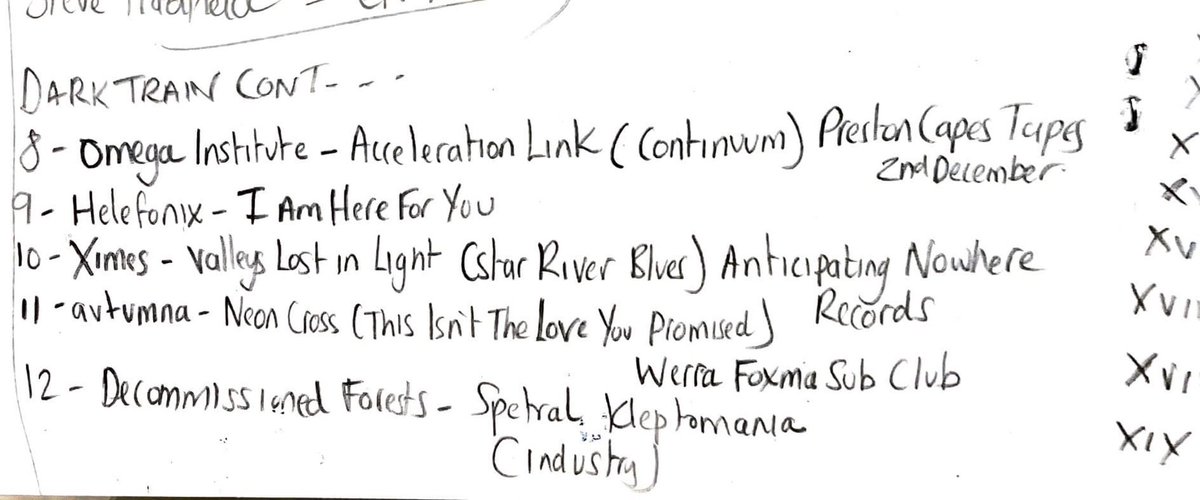 Steve
DARKTRAIN CONT- - -
8 - Omega Institute - Acceleration Link (Continuum) Preston Capes Tapes
2nd December.
9 - Helefonix - I Am Here For You
10 - Ximes - Valleys Lost in Light (Star River Blues) Anticipating Nowhere
Records
11 - autumna - Neon Cross (This Isn't The Love You Promised)
Werra Foxma Sub Club
12 - Decommissioned Forests - Spetral Kleptomania
(industry)
X
XV
XVII
XVI
XIX